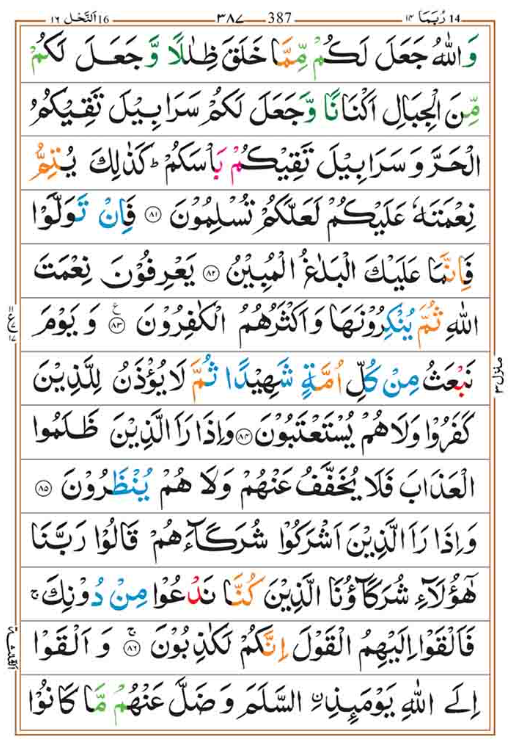 16 اَلنَّحْل ١٦ ٣٨٧ 387 14 رُبَمَا ١٤
وَاللّٰهُ جَعَلَ لَكُمْ مِّمَّا خَلَقَ ظِلٰلًا وَّ جَعَلَ لَكُمْ
مِّنَ الْجِبَالِ اَكْنَانًا وَّجَعَلَ لَكُمْ سَرَابِيْلَ تَقِيْكُمُ
الْحَرَّ وَ سَرَابِيْلَ تَقِيْكُمْ بَاْسَكُمْ ؕ كَذٰلِكَ يُتِمُّ
نِعْمَتَهٗ عَلَيْكُمْ لَعَلَّكُمْ تُسْلِمُوْنَ ﴿۸۱﴾ فَاِنْ تَوَلَّوْا
فَاِنَّمَا عَلَيْكَ الْبَلٰغُ الْمُبِيْنُ ﴿۸۲﴾ يَعْرِفُوْنَ نِعْمَتَ
اللّٰهِ ثُمَّ يُنْكِرُوْنَهَا وَ اَكْثَرُهُمُ الْكٰفِرُوْنَ ﴿۸۳﴾ وَ يَوْمَ
نَبْعَثُ مِنْ كُلِّ اُمَّةٍ شَهِيْدًا ثُمَّ لَا يُؤْذَنُ لِلَّذِيْنَ
كَفَرُوْا وَلَا هُمْ يُسْتَعْتَبُوْنَ ﴿۸۴﴾ وَاِذَا رَاَ الَّذِيْنَ ظَلَمُوا
الْعَذَابَ فَلَا يُخَفَّفُ عَنْهُمْ وَلَا هُمْ يُنْظَرُوْنَ ﴿۸۵﴾
وَاِذَا رَاَ الَّذِيْنَ اَشْرَكُوْا شُرَكَآءَهُمْ قَالُوْا رَبَّنَا
هٰٓؤُلَآءِ شُرَكَآؤُنَا الَّذِيْنَ كُنَّا نَدْعُوْا مِنْ دُوْنِكَ ۚ
فَاَلْقَوْا اِلَيْهِمُ الْقَوْلَ اِنَّكُمْ لَكٰذِبُوْنَ ﴿۸۶﴾ ۚ وَ اَلْقَوْا
اِلَى اللّٰهِ يَوْمَئِذِ ِ۟السَّلَمَ وَ ضَلَّ عَنْهُمْ مَّا كَانُوْا
منزل ٣